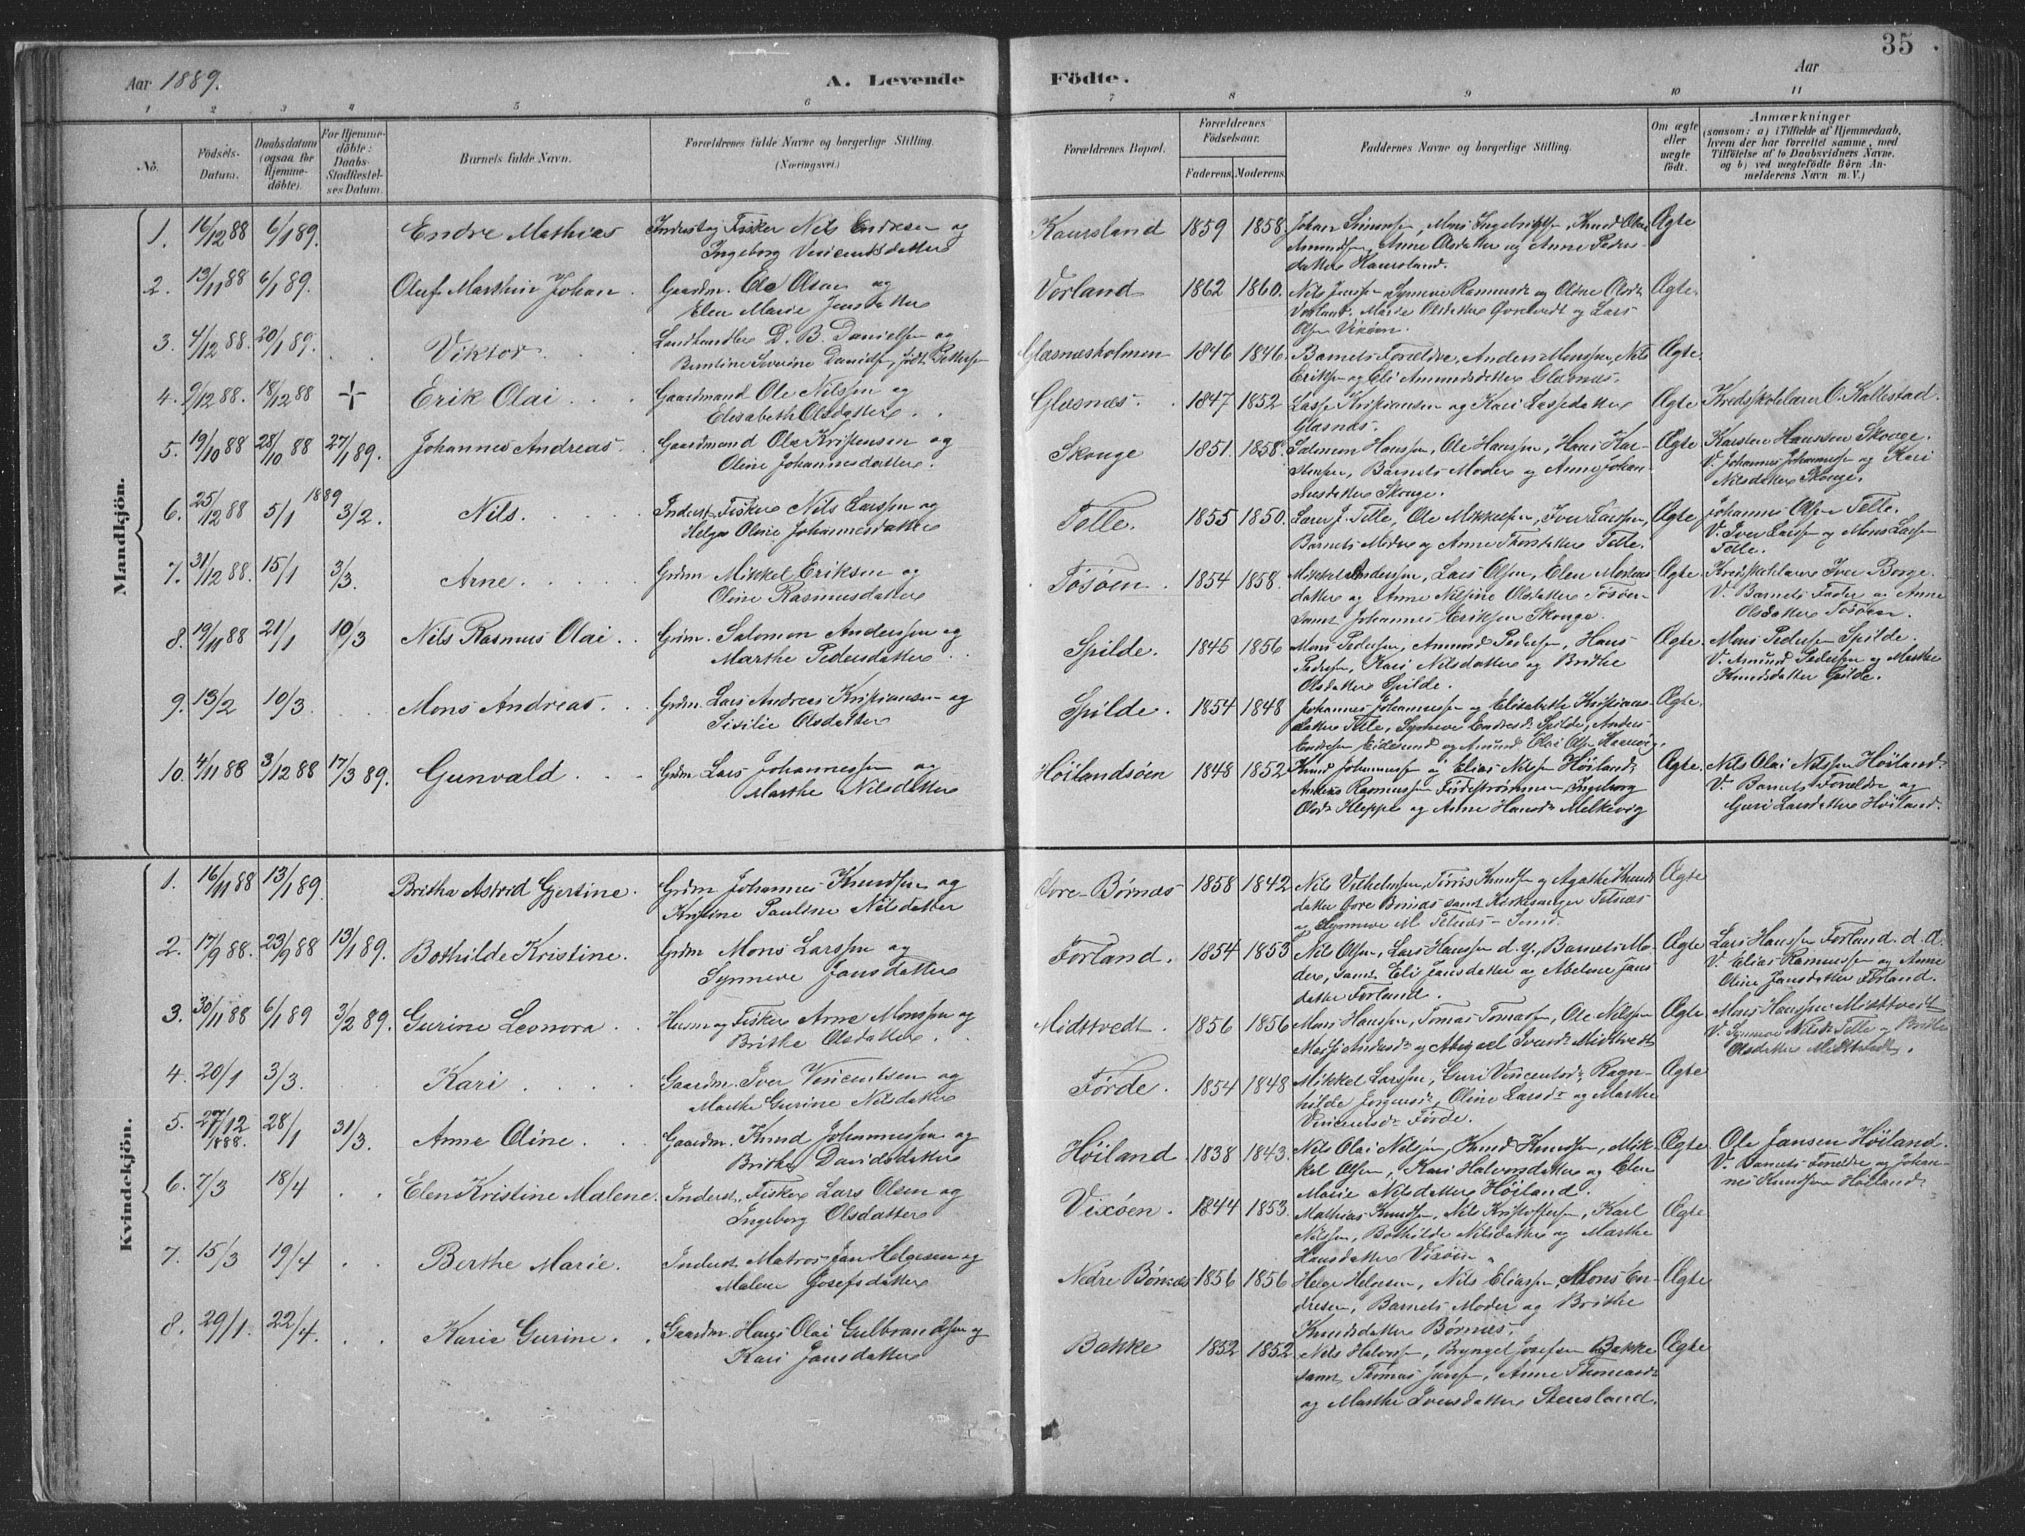 35
Aar 1889.
A. Levende
Födte.
Aar
1 2 3 4 5 6 7 8 9 10 11
No.
Födsels-Datum.
Daabsdatum (ogsaa for Hjemme-döbte).
For Hjemme-döbte: Daabs-Stadfæstel-ses Datum.
Barnets fulde Navn.
Forældrenes fulde Navne og borgerlige Stilling. (Næringsvei.)
Forældrenes Bopæl.
Forældrenes Födselsaar.
Faderens Moderens.
Faddernes Navne og borgerlige Stilling.
Om ægte eller uægte födt.
Anmærkninger
(saasom: a) i Tilfælde af Hjemmedaab, hvem der har forrettet samme, med Tilföielse af to Daabsvidners Navne, og b) ved uægtefödte Börn An-melderens Navn m. V.)
Mandkjön.
1. 16/12 88 6/1 89. Endre Mathias Inderst og Fisker Nils Endresen og
Ingeborg Vincentsdatter
Kaursland 1859 1858 Johan Simonsen, Mons Ingebrigtsen, Knud Olai
Amundsen, Anne Olsdatter og Anne Peders-
datter Haursland. Ægte
2. 13/11 88 6/1 89. Oluf Marthin Johan. Gaardm. Ole Olsen og
Elen Marie Jensdatter
Vorland 1862 1860. Nils Jensen, Synneve Rasmusd. og Oline Olsd.
Vorland, Marie Olsdatter Qvstvedt og Lars
Olsen Vixöen. Ægte.
3. 4/12 88. 20/1 89. Viktor Landhandler D. B. Danielsen og
Bentine Severine Danielsen, født Pettersen
Glæsnæsholmen 1846 1846. Barnets Forældre, Anders Monssen, Nils
Eriksen og Eli Amundsdatter Glæsnæs. Ægte
4. 9/12 88. 18/12 88 + Erik Olai Gaardmand Ole Nilssen og
Elisabeth Olsdatter
Glæsnæs. 1847 1852 Lasse Kristiansen og Kari Lassedatter
Glæsnæs. Ægte Kredsskolelærer O. Kallestad.
5. 19/10 88 28/10 88 27/1 89. Johannes Andreas Gaardmand Ole Kristensen og
Oline Johannesdatter.
Skouge 1851. 1858. Salomon Hanssen, Ole Hanssen, Hans Kar-
stensen, Barnets Moder og Anne Johan-
nesdatter Skouge. Ægte Karsten Hanssen Skouge.
V. Johannes Johannessen og Kari
Nilsdatter Skouge.
6. 25/12 88 5/1 1889 3/2. Nils. Inderst, Fisker Nils Larssen og
Helga Oline Johannesdatter
Telle. 1855 1850. Larer J. Telle, Ole Mikkelsen, Iver Larssen,
Barnets Moder og Anne Thorsdatter Telle. Ægte Johannes Olsen Telle.
V. Iver Larssen og Mons Larssen
Telle.
7. 31/12 88. 15/1 3/3. Arne Grdm. Mikkel Eriksen og
Oline Rasmusdatter
Tösöen. 1854 1858. Mikkel Andersen, Lars Olsen, Elen Mortens-
datter og Anne Olsdatter Tösöen
samt Johannes Eriksen Skouge. Ægte. Kredsskolelærer Iver Borge.
V. Barnets Fader og Anne
Olsdatter Tösöen.
8. 19/11 88 21/1 10/3 Nils Rasmus Olai Grdm. Salomon Anderssen og
Marthe Pedersdatter
Spilde. 1845 1856 Mons Pedersen, Amund Pedersen, Hans
Pedersen, Kari Nilsdatter og Brithe
Olsdatter Spilde. Ægte. Mons Pedersen Spilde.
V. Amund Pedersen og Marthe
Knudsdatter Spilde.
9. 13/2 10/3. Mons Andreas. Grdm. Lars Andreas Kristiansen og
Sisilie Olsdatter
Spilde. 1854 1848 Johannes Johannessen og Elisabeth Kristians-
datter Telle, Synneve Endresd. Spilde, Anders
Endresen Eidesund og Amund Olai Olsen Haavig. Ægte.
10. 4/11 88 3/12 88 17/3 89. Gunvald Grdm. Lars Johannessen og
Marthe Nilsdatter
Höilandsöen 1848 1852 Knud Johannessen, Elias Nilssen Höiland,
Anders Rasmussen Fördestrommen, Ingeborg
Olsd. Kleppe og Anne Hansd. Melkevig Ægte. Nils Olai Nilssen Höiland.
V. Barnets Forældre og
Guri Larsdatter Höiland.
Kvindekjön.
1. 16/11 88 13/1 89. Britha Astrid Gjertine. Grdm. Johannes Knudssen og
Kristine Pauline Nilsdatter
Övre-Børnæs 1858 1842 Nils Vilhelmsen, Tørris Knudssen og Agathe Knuds-
datter Övre Børnæs samt Kirkesanger Tetnæs
og Synneve M. Tetnæs - Sund Ægte
2. 17/9 88. 23/9 88 13/1 89. Bothilde Kristine. Grdm. Mons Larssen og
Synneve Jansdatter
Forland. 1854 1853 Nils Olsen, Lars Hanssen d. y., Barnets Mo-
der, samt Eli Jansdatter og Abelone Jans
datter Forland. Ægte Lars Hanssen Forland d. Æ.
V. Elias Rasmussen og Anne
Oline Jansdatter Forland.
3. 30/11 88 6/1 89 3/2 89. Gurine Leonora Husm. og Fisker Arne Monssen og
Brithe Olsdatter
Midtvedt. 1856 1856 Mons Hanssen, Tomas Tomassen, Ole Nilssen
Marthe Andersd. og Abigael Iversd. Midtvedt Ægte Mons Hanssen Midttvedt
V. Synneve Nilsd. Telle og Brithe
Olsdatter Midtvedt.
4. 20/1 3/3. Kari Gaardm. Iver Vincentsen og
Marthe Gurine Nilsdatter
Förde. 1854 1848 Mikkel Larssen, Guri Vincentsd., Ragn-
hilde Jörgensd., Oline Larsd. og Marthe
Vincentsd. Förde. Ægte
5. 27/12 1888. 28/1 31/3. Anne Oline. Gaardm. Knud Johannessen og
Brithe Davidsdatter
Höiland. 1838 1843. Nils Olai Nilssen, Knud Knudssen, Mik-
kel Olsen, Kari Halvorsdatter og Elen
Marie Nilsdatter Höiland. Ægte Ole Jansen Höiland.
V. Barnets Forældre og Johan-
nes Knudssen Höiland.
6. 7/3 18/4 Elen Kristine Malene. Inderst, Fisker Lars Olsen og
Ingeborg Olsdatter
Vixöen. 1844 1853. Mathias Knudssen, Nils Kristoffersen, Karl
Nilssen, Bothilde Nilsdatter og Marthe
Hansdatter Vixöen. Ægte
7. 15/3 19/4 Berthe Marie. Inderst, Matros Jan Helgesen og
Malene Josefsdatter
Nedre Børnæs 1856 1856 Helge Helgesen, Nils Eliassen, Mons En-
dresen, Barnets Moder og Brithe
Knudsdatter Børnæs. Ægte
8. 29/1. 22/4. Karie Gurine. Gaardm. Hans Olai Gulbrandsen og
Kari Jansdatter
Bakke 1852 1852 Nils Halvorsen, Bryngel Josefsen Bakke
samt Tomas Jansen, Anne Thomasd.
og Marthe Iversdatter Stensland. Ægte